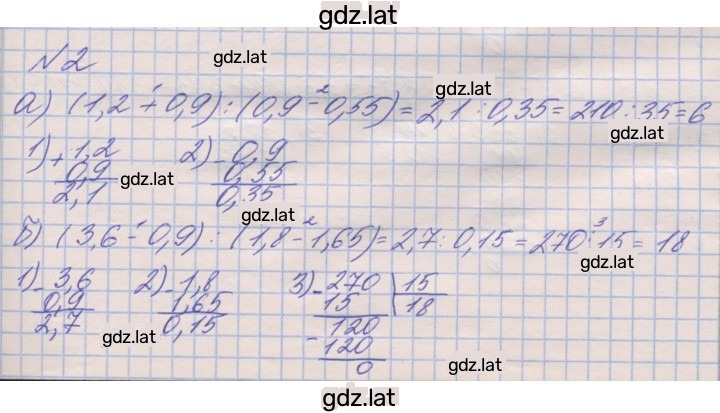 gdz.lat
№2 gdz.lat
gdz.lat
а) (1,2 + 0,9) : (0,9 - 0,55) = 2,1 : 0,35 = 210 : 35 = 6
1 2
gdz.lat
1) + 1,2 2) - 0,9
0,9 0,55
gdz.lat
2,1 0,35
gdz.lat
б) (3,6 - 0,9) : (1,8 - 1,65) = 2,7 : 0,15 = 270 : 15 = 18
1 2 3
gdz.lat
1) - 3,6 2) - 1,8 3) - 270 15
0,9 1,65 15 18
2,7 0,15 120
gdz.lat
- 120
0 gdz.lat
gdz.lat